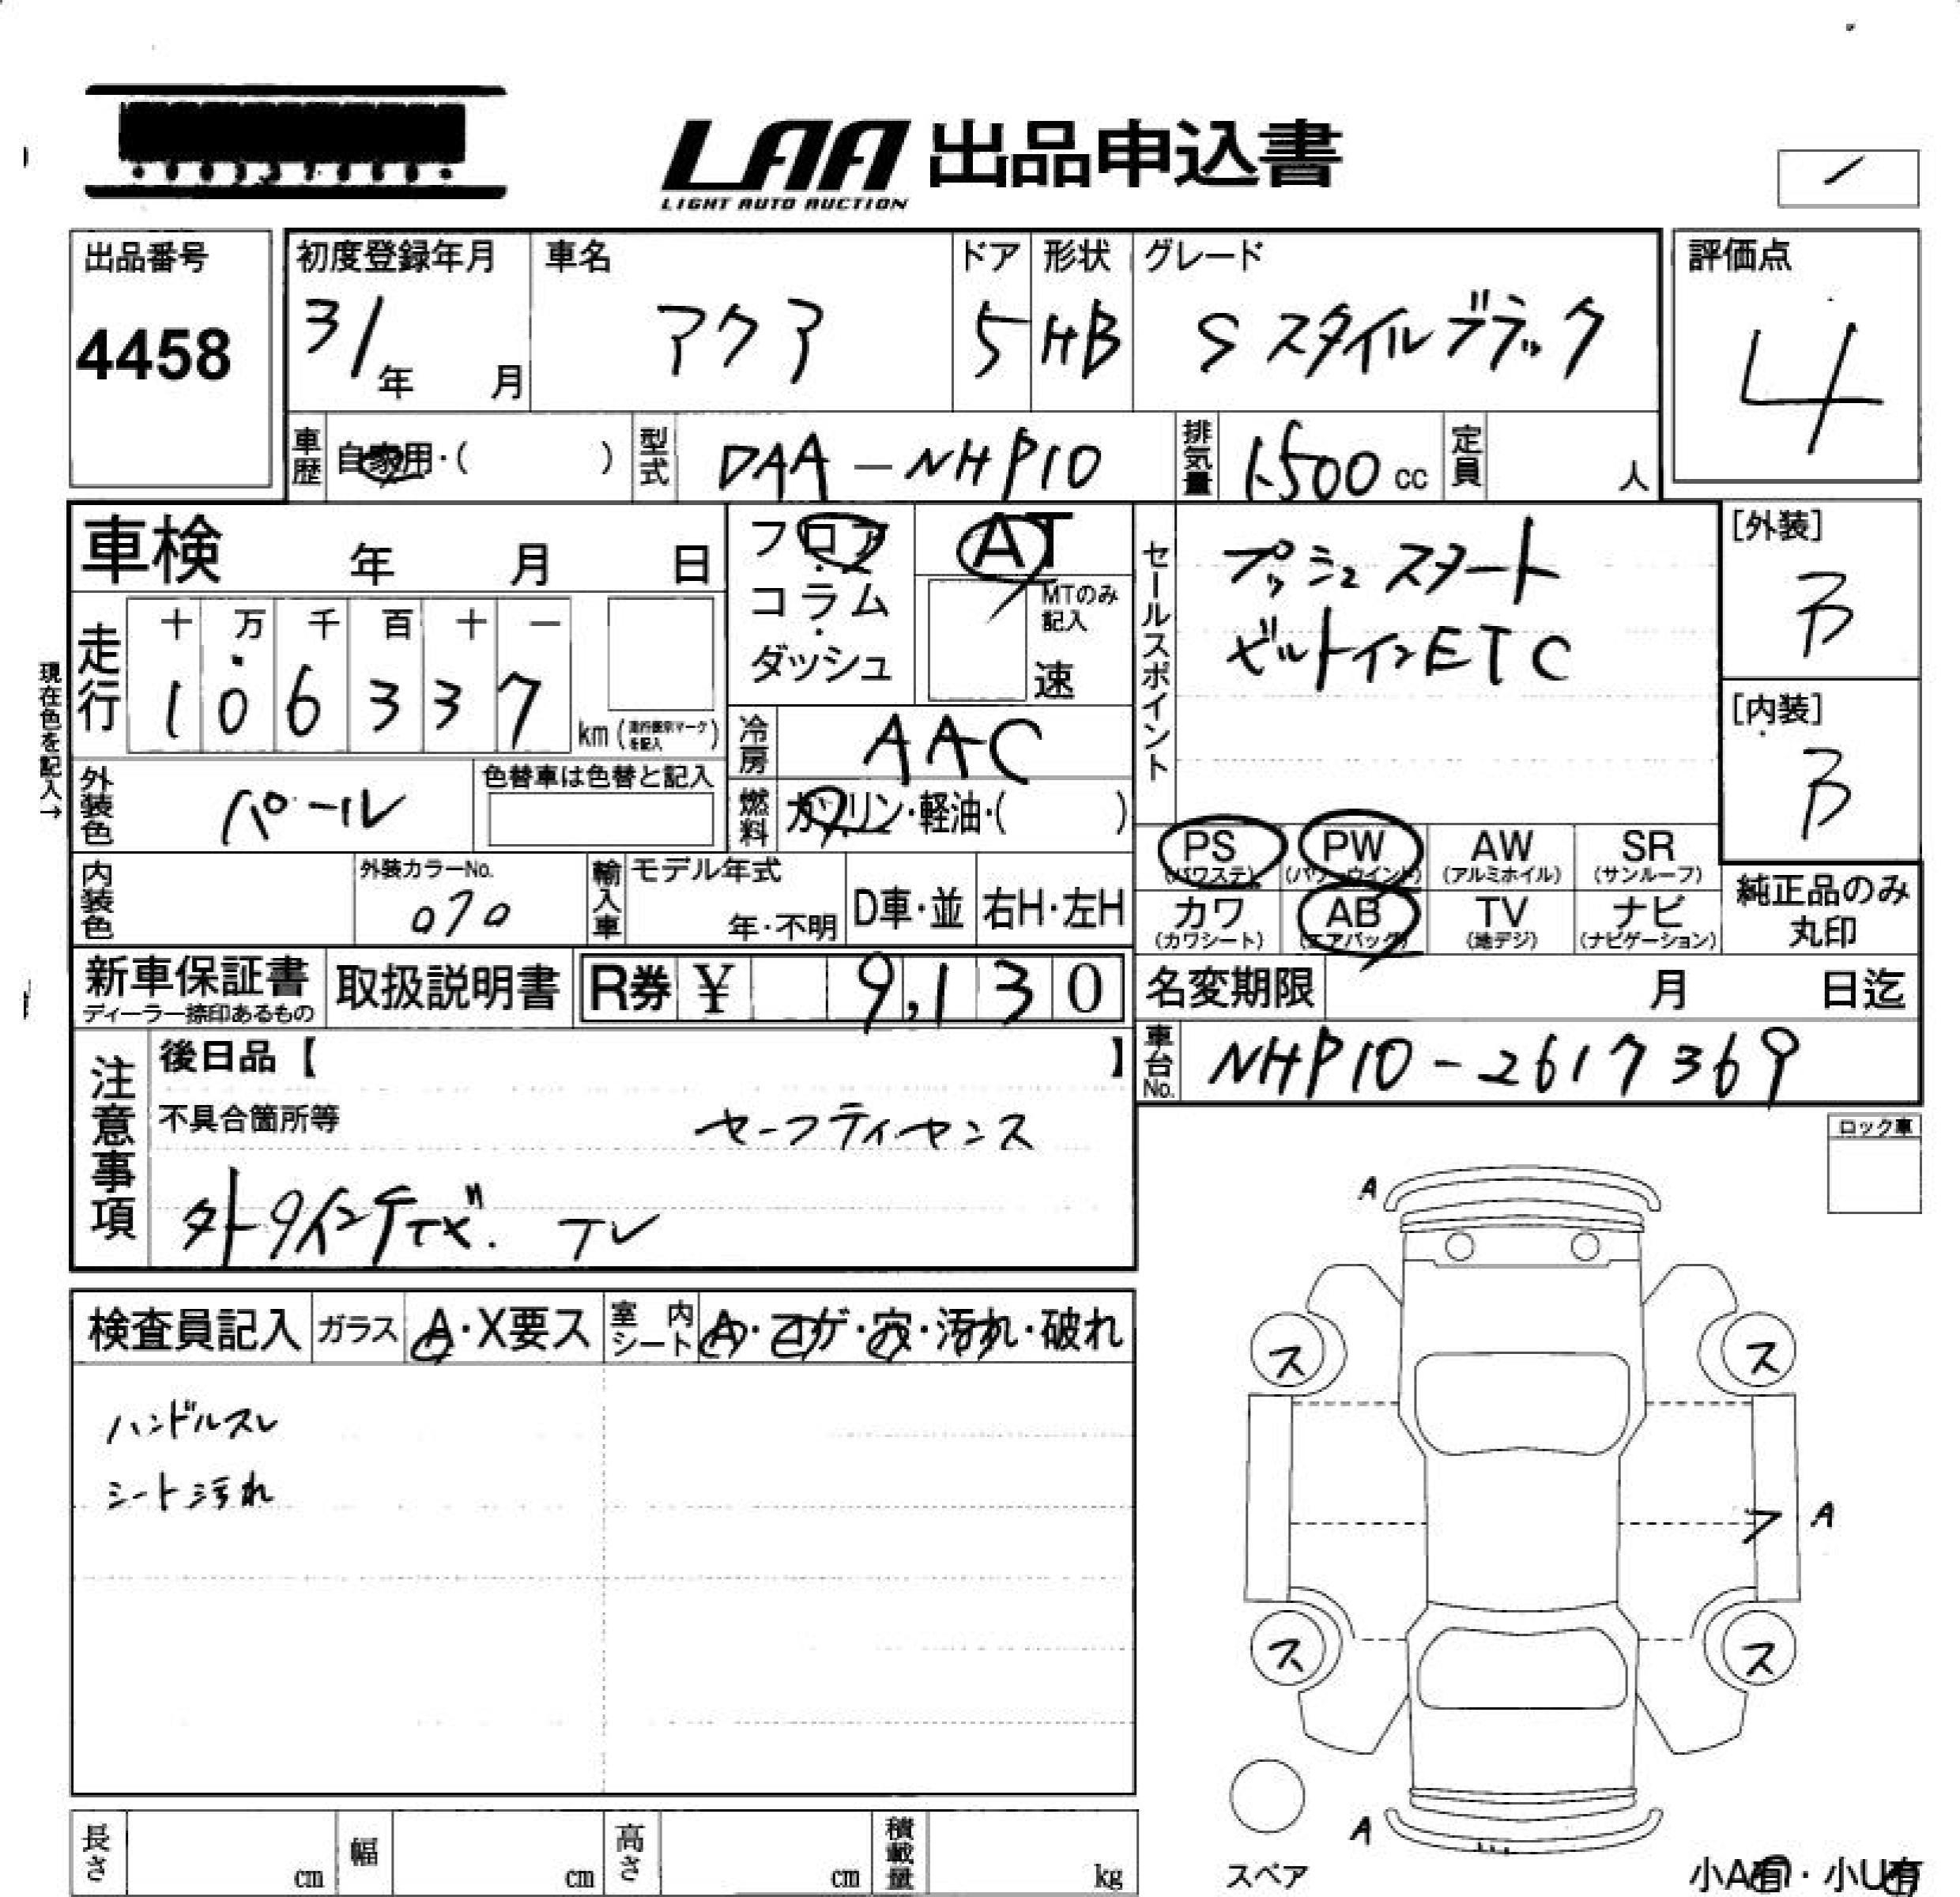 LAA 出品申込書
LIGHT AUTO AUCTION
出品番号
4458
初度登録年月
31年 月
車名
アクア
ドア
5
形状
HB
グレード
S スタイルブラック
評価点
4
車歴 自家用・( )
型式 DAA-NHP10
排気量 1500cc
定員 人
車検 年 月 日
フロア
コラム
ダッシュ
AT
MTのみ記入
速
セールスポイント
プッシュスタート
ビルトインETC
[外装]
B
[内装]
B
現在色を記入→
走行
十 万 千 百 十 一
1 0 6 3 3 7
km (走行表示マークを記入)
冷房 AAC
外装色 パール
色替車は色替と記入
燃料 ガソリン・軽油・( )
PS (パワステ)
PW (パワーウインド)
AW (アルミホイル)
SR (サンルーフ)
内装色
外装カラーNo.
070
輸入車
モデル年式
年・不明
D車・並
右H・左H
カワ (カワシート)
AB (エアバッグ)
TV (地デジ)
ナビ (ナビゲーション)
純正品のみ
丸印
新車保証書
ディーラー捺印あるもの
取扱説明書
R券 ¥ 9,130
名変期限 月 日迄
車台No. NHP10-2617369
注意事項
後日品【 】
不具合箇所等
セーフティセンス
テレビ. TV
ロック車
検査員記入
ガラス A・X要ス
室内シート A・コゲ・穴・汚れ・破れ
ハンドルスレ
シート汚れ
A
ス ス
フ A
ス ス
A
スペア
小A有・小U有
長さ cm
幅 cm
高さ cm
積載量 kg